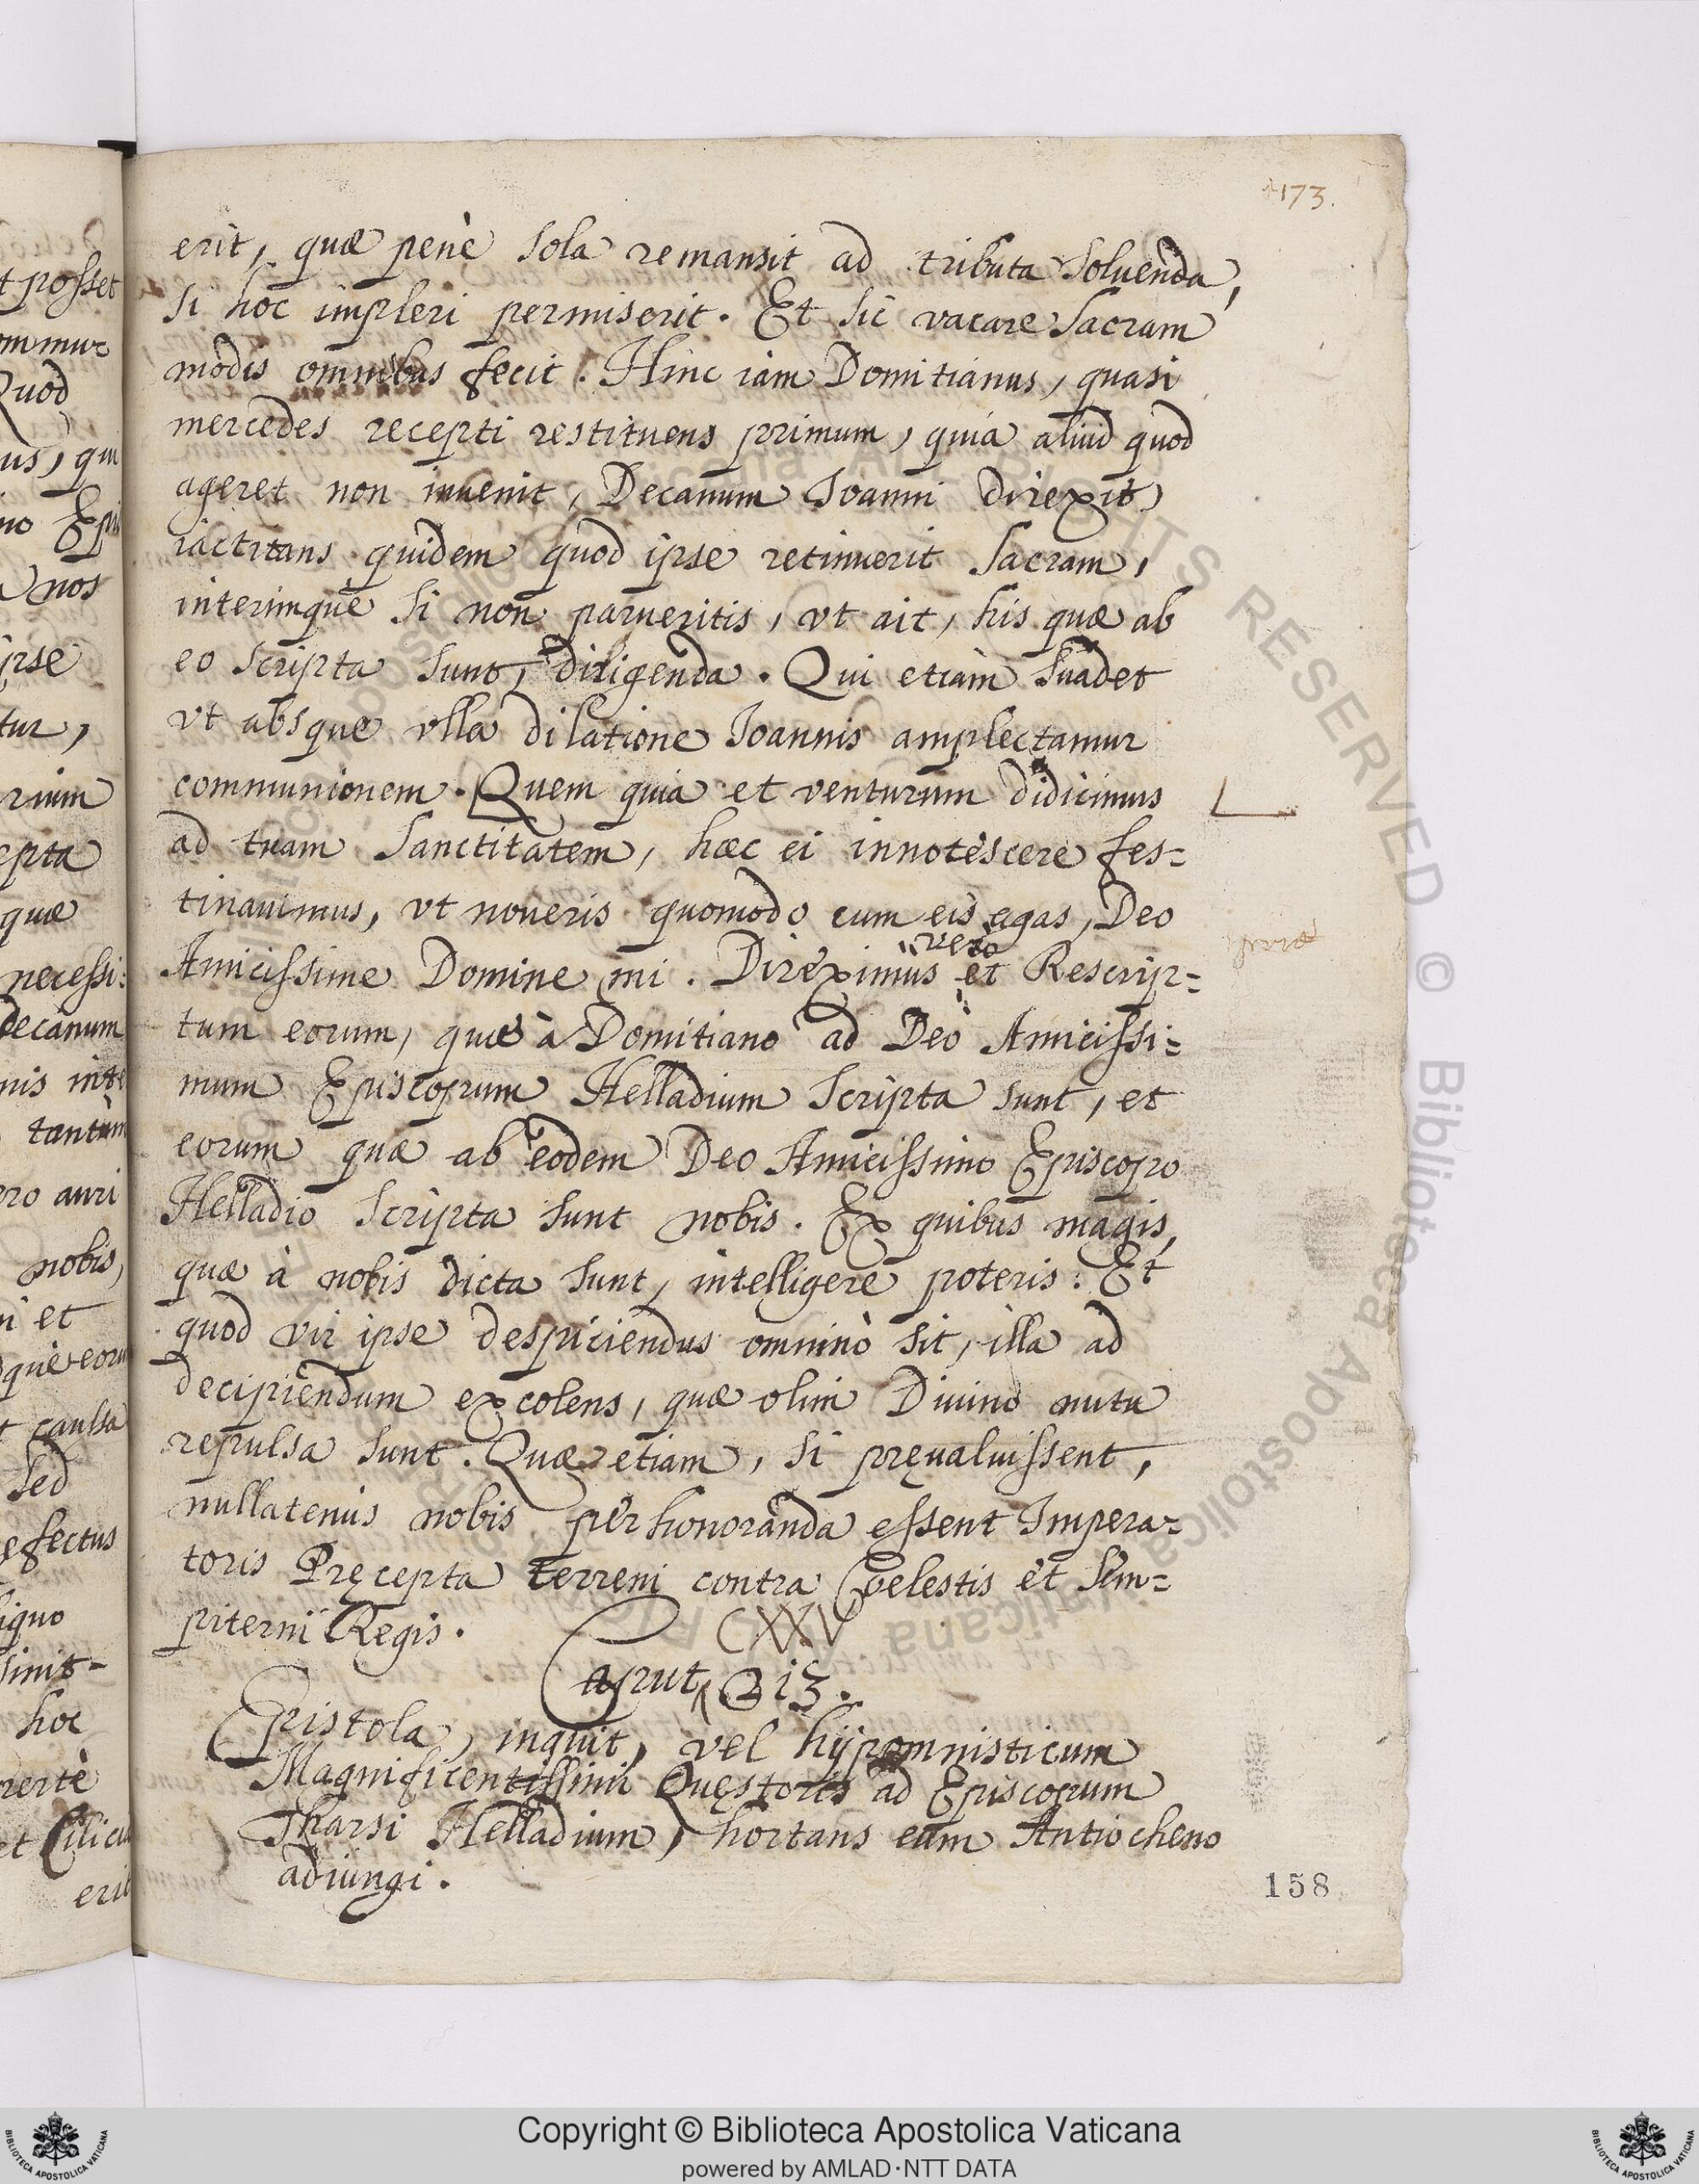 173.
erit, quæ penè sola remansit ad tributa soluenda,
si hoc impleri permiserit. Et sic vacare sacram
modis omnibus fecit. Hinc iam Domitianus, quasi
mercedes recepti restituens primum, quia aliud quod
ageret non inuenit, Decanum Ioanni direxit,
iactitans quidem quod ipse retinuerit sacram,
interimquè si non parueritis, vt ait, his quæ ab
eo scripta sunt, diligenda. Qui etiàm suadet
vt absque vlla dilatione Ioannis amplectamur
communionem. Quem quia et venturum didicimus
ad tuam sanctitatem, hæc ei innotèscere fes=
tinauimus, vt noueris quomodo cum eis agas, Deo
vero
Amicissime Domine mi. Direximus et Rescrip=
tum eorum, quæ à Domitiano ad Deo Amicissi=
mum Episcopum Helladium scripta sunt, et
eorum quæ ab eodem Deo Amicissimo Episcopo
Helladio scripta sunt nobis. Ex quibus magis,
quæ à nobis dicta sunt, intelligere poteris: Et
quod vir ipse despiciendus omninò sit, illa ad
decipiendum excolens, quæ olim Diuino nutu
repulsa sunt. Quæ etiam, si pręualuissent,
nullatenus nobis perhonoranda essent Impera=
toris Pręcepta terreni contra Coelestis et sem=
piterni Regis.
CXXV
Caput 213.
Epistola, inquit, vel hypomnisticum
Magnificentissimi Quęstoris ad Episcopum
Tharsi Helladium, hortans eum Antiocheno
adiungi.
158
t posset
Quod
us, qui
nos
ipse
tur,
rium
epta
quæ
necessi:
decanum
nis inte
tantùm
ero auri
nobis,
ni et
què eoru
t caussa
sed
efectus
signo
sinit-
hoc
rertè
et Cilici
erit
Copyright © Biblioteca Apostolica Vaticana
powered by AMLAD·NTT DATA